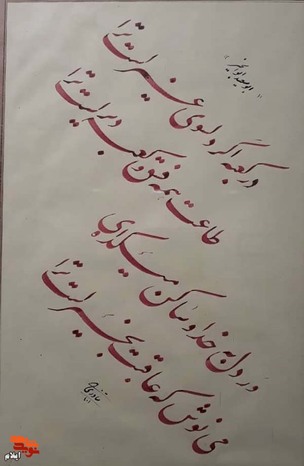 ابوسعید ابوالخیر
در کعبه اگر دل سوی غیر است ترا
طاعت همه فسق و کعبه دیر است ترا
ور دل به خدا و ساکن میکده ای
می نوش که عاقبت بخیر است ترا
ایلام